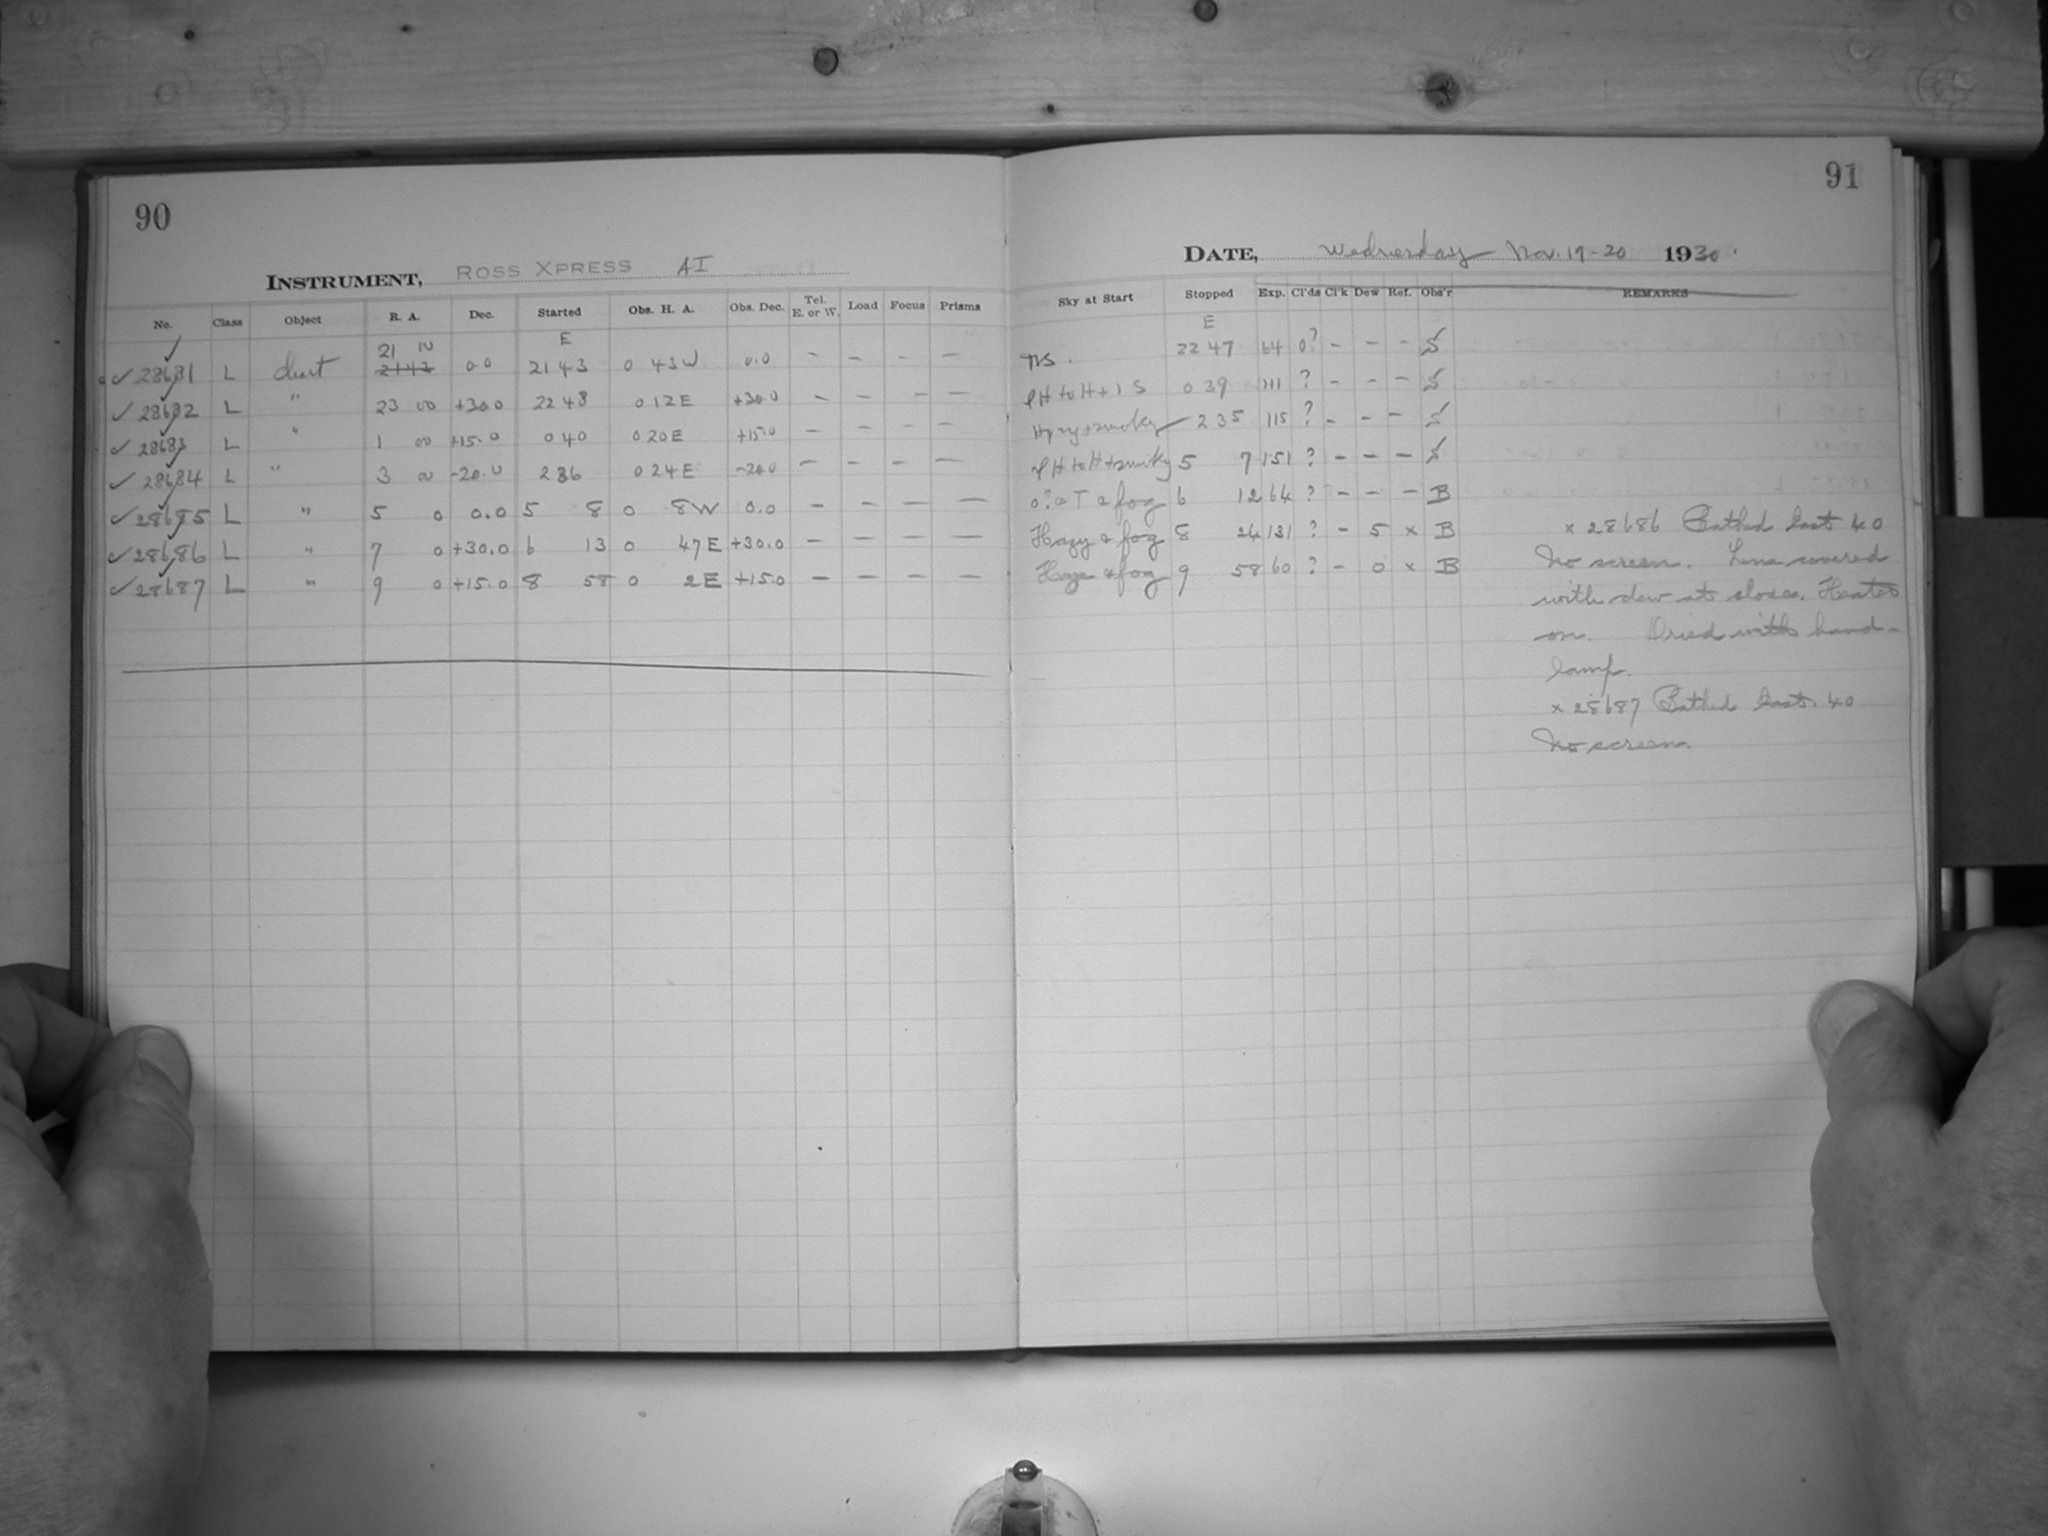 90
INSTRUMENT, ROSS XPRESS AI
No. Class Object R. A. Dec. Started Obs. H. A. Obs. Dec. Tel. E. or W. Load Focus Prisms
E
21 00
✓ 28681 L chart 2143 0.0 21 43 0 43 W 0.0 – – – –
✓ 28682 L " 23 00 +30.0 22 48 0 12 E +30.0 – – – –
✓ 28683 L " 1 00 +15.0 0 40 0 20 E +15.0 – – – –
✓ 28684 L " 3 00 -20.0 2 36 0 24 E -20.0 – – – –
✓ 28685 L " 5 0 0.0 5 8 0 8 W 0.0 – – – –
✓ 28686 L " 7 0 +30.0 6 13 0 47 E +30.0 – – – –
✓ 28687 L " 9 0 +15.0 8 58 0 2 E +15.0 – – – –
91
DATE, Wednesday Nov. 19-20 1930.
Sky at Start Stopped Exp. Cl'ds Cl'k Dew Ref. Obs'r REMARKS
E
22 47 64 0? – – – S
PH to H + 1 S 0 39 111 ? – – – S
Hazy + smoky 2 35 115 ? – – – S
PH to H + smoky 5 7 151 ? – – – S
0? a T a fog 6 12 64 ? – – – B
Hazy & fog 8 24 131 ? – 5 x B
Haze & fog 9 58 60 ? – 0 x B
x 28686 Bathed East. 40
No screen. Lens covered
with dew at close. Heater
on. Dried with hand-
lamp.
x 28687 Bathed East. 40
No screen.